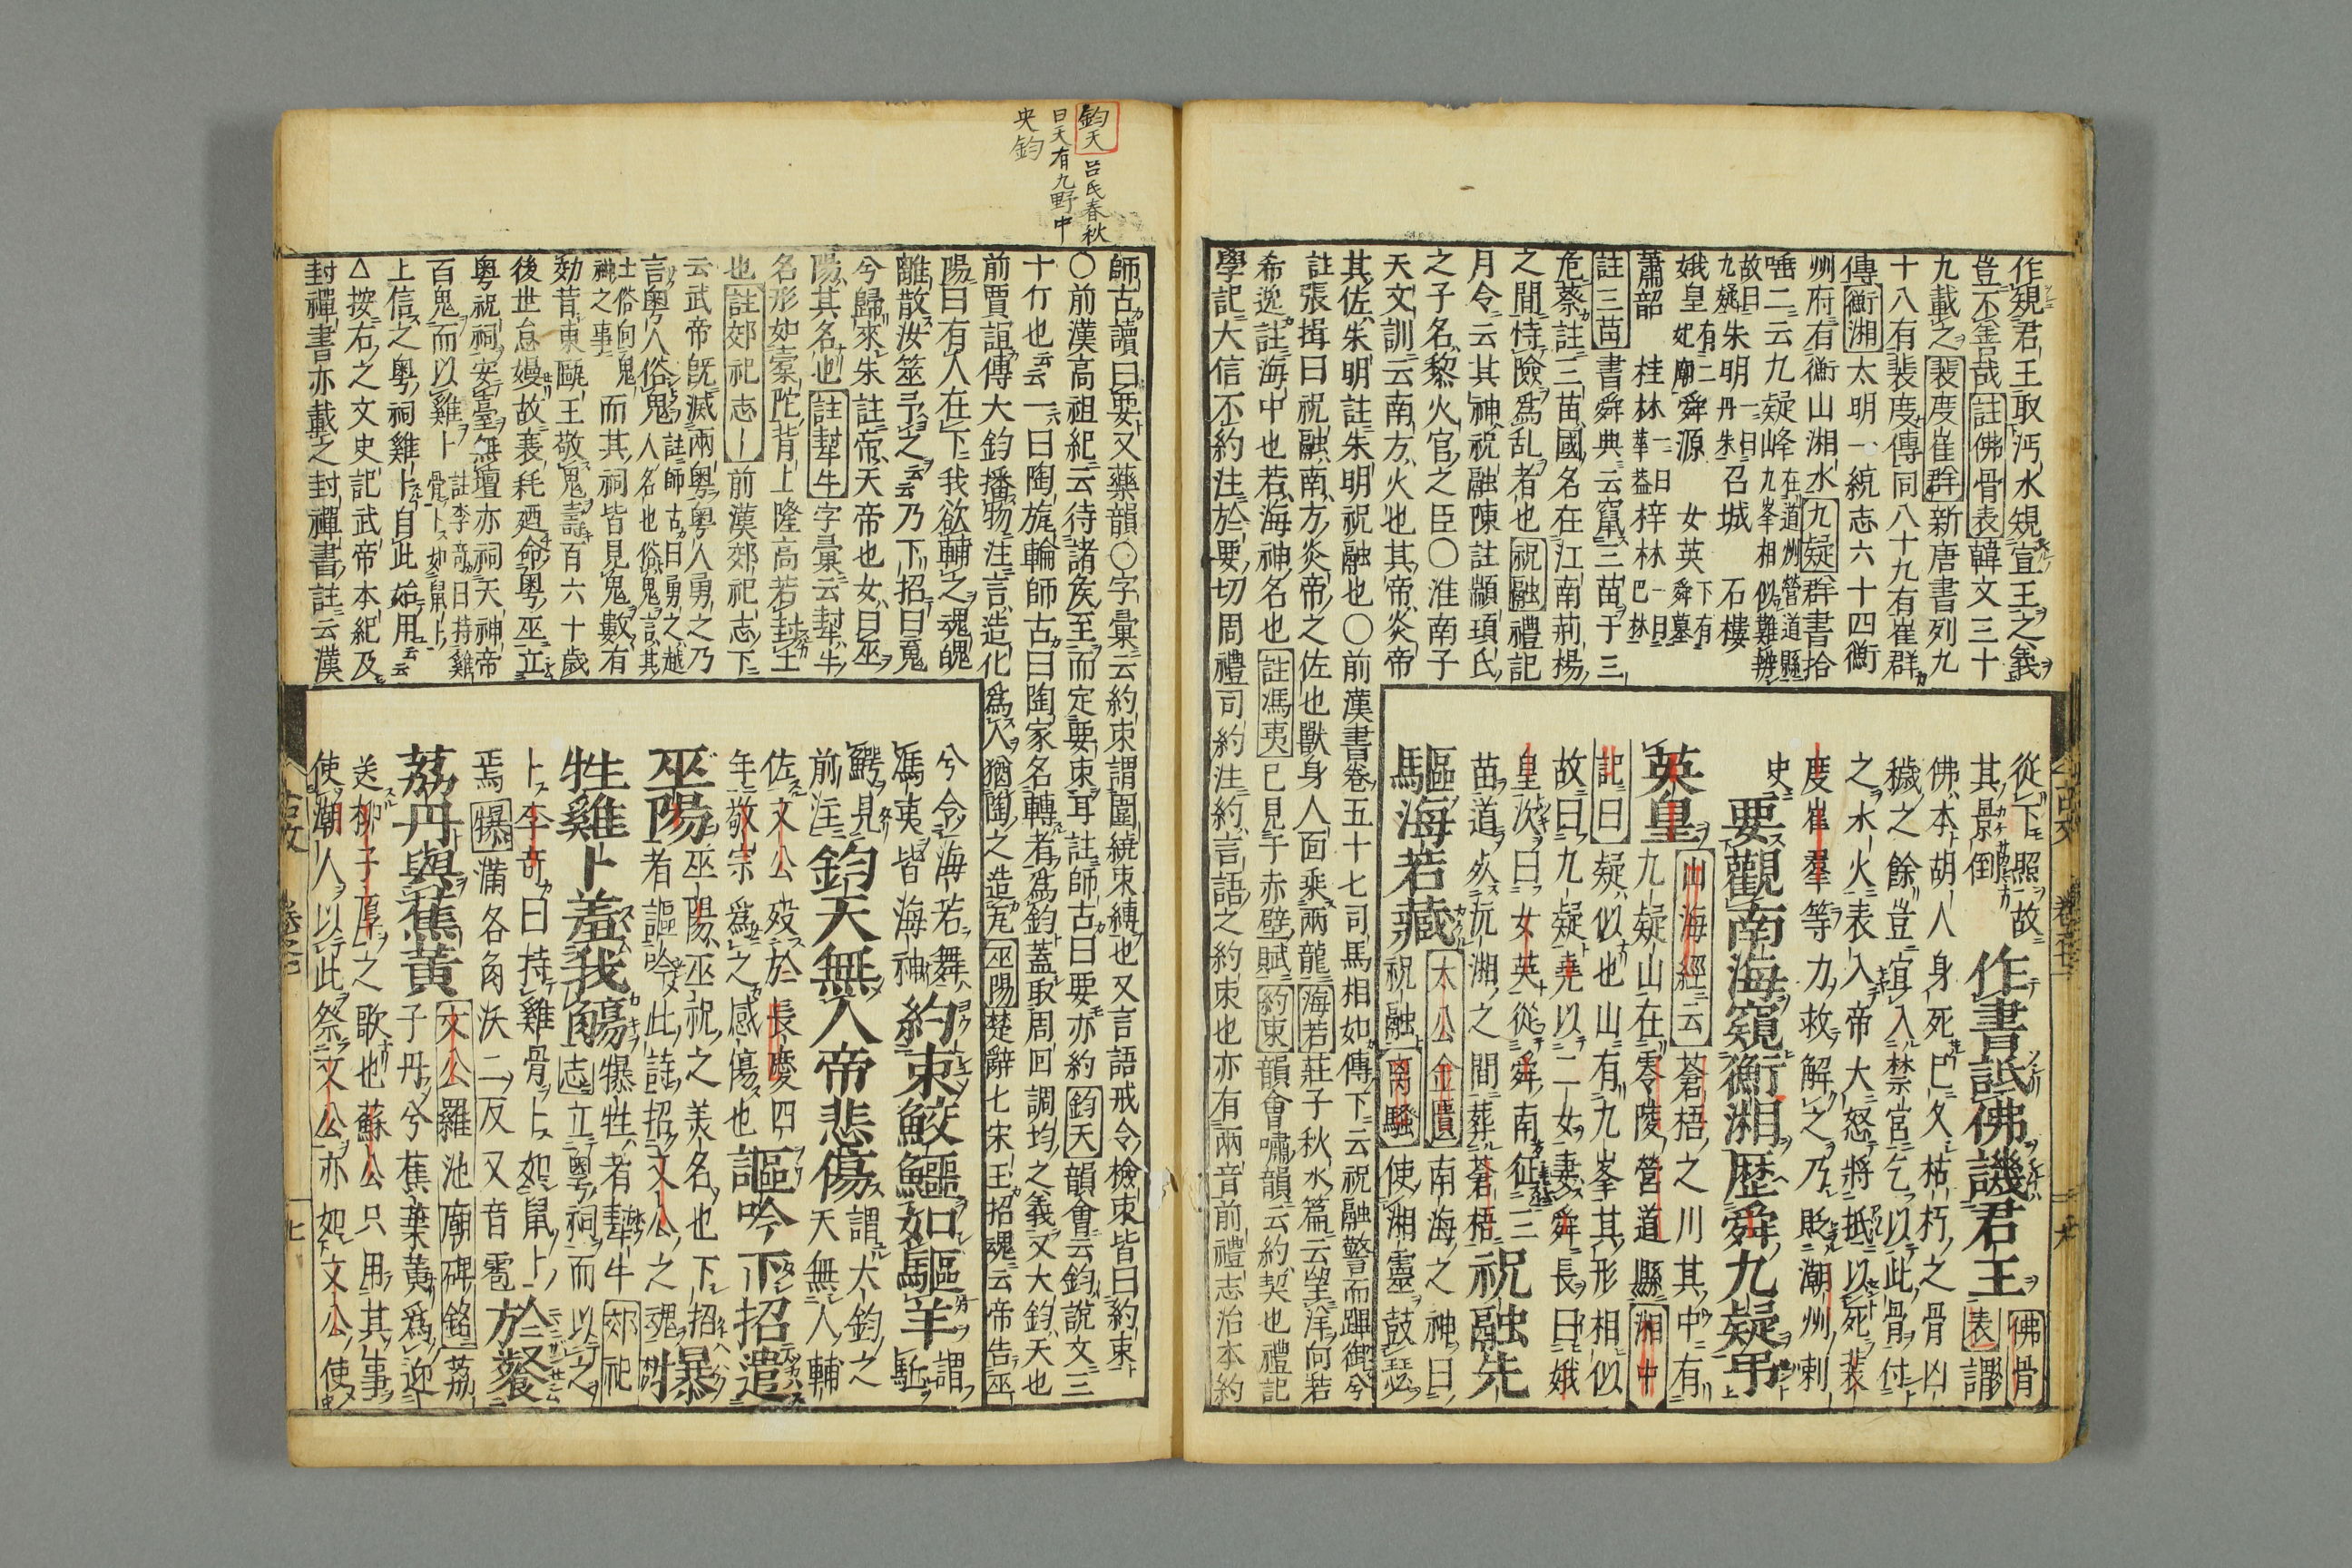 作規君王取沔水規宣王之義
豈不善哉註佛骨表韓文三十
九載之裴度崔群新唐書列九
十八有裴度傳同八十九有崔群
傳衡湘太明一統志六十四衡
州府有衡山湘水九疑群書拾
唾二云九疑峰在道州營道縣九峯相似難辨
故曰九疑朱明一曰丹朱召城石樓
娥皇有二妃廟舜源女英下有舜墓
蕭韶桂林一曰華蓋梓林一曰巴林
註三苗書舜典云竄三苗于三
危蔡註三苗國名在江南荊楊
之間恃險爲乱者也祝融禮記
月令云其神祝融陳註顓頊氏
之子名黎火官之臣〇淮南子
天文訓云南方火也其帝炎帝
其佐朱明註朱明祝融也〇前漢書卷五十七司馬相如傳下云祝融警而蹕御兮
註張揖曰祝融南方炎帝之佐也獸身人面乘兩龍海若莊子秋水篇云望洋向若
希逸註海中也若海神名也註馮夷已見于赤壁賦約束韻會嘯韻云約契也禮記
學記大信不約注於要切周禮司約注約言語之約束也亦有兩音前禮志治本約
從下照故作書詆佛譏君王佛骨
其景倒表謂
佛本胡人身死已久枯朽之骨凶
穢之餘豈宜入禁宮乞以此骨付
之水火表入帝大怒將抵以死裴
度崔羣等力救解之乃貶潮州刺
史要觀南海窺衡湘歷舜九疑弔
英皇山海經云蒼梧之川其中有
九疑山在零陵營道縣湘中
記曰九疑似也山有九峯其形相似
故曰九疑堯以二女妻舜長曰娥
皇次曰女英從舜南征三
苗道死沅湘之間葬蒼梧祝融先
驅海若藏太公金匱南海之神曰
祝融離騷使湘靈鼓瑟
鈞天呂氏春秋
曰天有九野中
央鈞
師古讀曰要又藥韻〇字彙云約束謂圍繞束縛也又言語戒令檢束皆曰約束
〇前漢高祖紀云待諸矦至而定要束耳註師古曰要亦約鈞天韻會云鈞說文三
十斤也云云一曰陶旊輪師古曰陶家名轉者爲鈞蓋取周回調均之義又大鈞天也
前賈誼傳大鈞播物注言造化爲人猶陶之造瓦巫陽楚辭七宋玉招魂云帝告巫
陽曰有人在下我欲輔之魂魄
離散汝筮予之云云乃下招曰䰟
兮歸來朱註帝天帝也女曰巫
陽其名也註犎牛字彙云犎牛
名形如橐陀背上隆高若封土
也註郊祀志前漢郊祀志下
云武帝旣滅兩粤粤人勇之乃
言粤人俗鬼註師古曰勇之越人名也俗鬼言其土俗向鬼神之事而其祠皆見鬼數有
効昔東甌王敬鬼壽百六十歲
後世怠嫚故衰耗廼命粤巫立
粤祝祠安臺無壇亦祠天神帝
百鬼而以雞卜註李奇曰持雞骨卜如鼠卜
上信之粤祠雞卜自此始用云云
△按右之文史記武帝本紀及
封禪書亦載之封禪書註云漢
兮令海若舞約束鮫鱷如驅羊謂
馮夷皆海神駈
鱷見鈞天無人帝悲傷謂大鈞之
前注天無人輔
佐文公歿於長慶四謳吟下招遣
年敬宗爲之感傷也
巫陽巫陽巫祝之美名也下招犦
者謳吟此詩招文公之魂
牲雞卜羞我觴犦牲者犎牛郊祀
志立粤祠而以雞
卜李奇曰持雞骨卜如鼠卜於餐
焉犦滿各角沃二反又音雹
荔丹與蕉黃文公羅池廟碑銘荔
子丹兮蕉葉黃爲迎
送柳子厚之歌也蘇公只用其事
使潮人以此祭文公亦如文公使